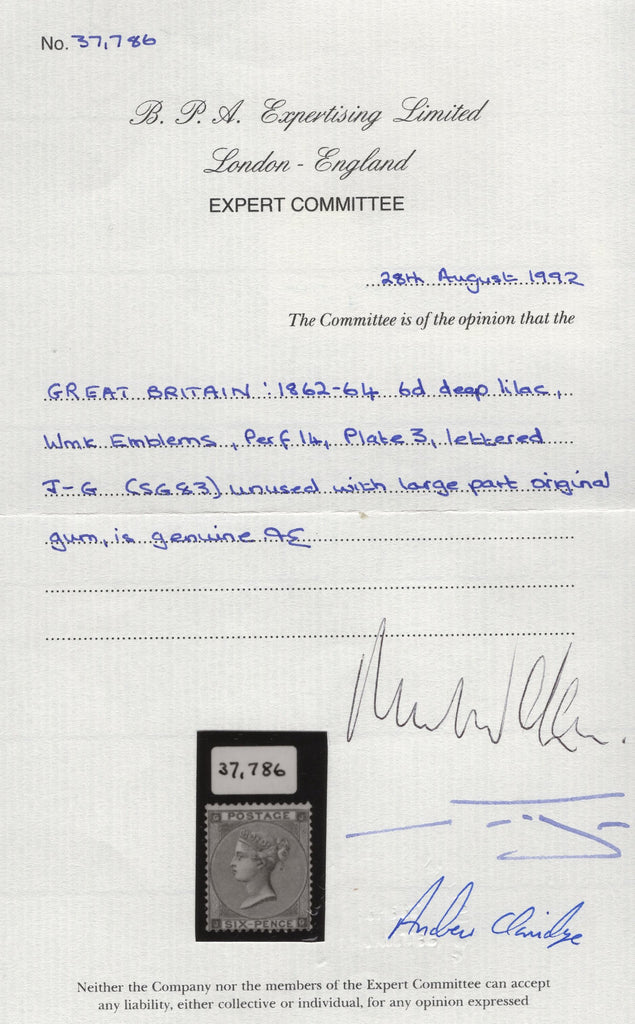 No. 37,786
B. P. A. Expertising Limited
London - England
EXPERT COMMITTEE
28th August 1992
The Committee is of the opinion that the
GREAT BRITAIN : 1862-64 6d deep lilac,
Wmk Emblems, Perf 14, Plate 3, lettered
J-G (SG83) unused with large part original
gum, is genuine
37,786
POSTAGE
SIX-PENCE
Andrew Claridge
Neither the Company nor the members of the Expert Committee can accept
any liability, either collective or individual, for any opinion expressed